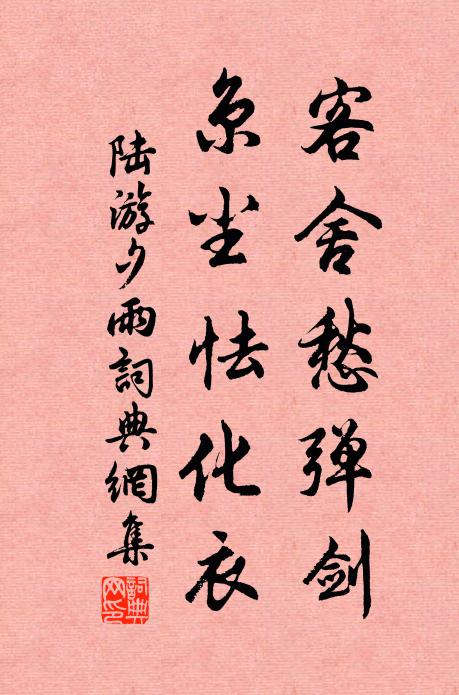 客舍愁弹剑
京尘怯化衣
陆游夕雨詞典網集
詞典网印